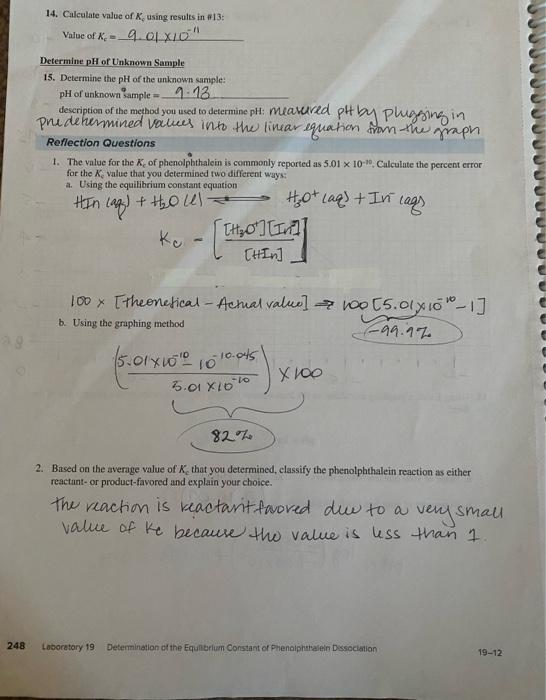 14. Calculate value of Kc using results in #13:
Value of Kc = 9.01 X10⁻¹¹
Determine pH of Unknown Sample
15. Determine the pH of the unknown sample:
pH of unknown sample = 9.13
description of the method you used to determine pH: measured pH by plugging in
predetermined values into the linear equation from the graph
Reflection Questions
1. The value for the Kc of phenolphthalein is commonly reported as 5.01 × 10⁻¹⁰. Calculate the percent error
for the Kc value that you determined two different ways:
a. Using the equilibrium constant equation
HIn (aq) + H₂O (l) ⇌ H₃O⁺ (aq) + In⁻ (aq)
Kc = [[H₃O⁺][In⁻]
[HIn]]
100 × [theoretical - Actual value] → 100 [5.01×10⁻¹⁰-1]
b. Using the graphing method
-99.9%
(5.01×10⁻¹⁰ - 10⁻¹⁰·⁰⁴⁵
5.01 ×10⁻¹⁰) ×100
82%
2. Based on the average value of Kc that you determined, classify the phenolphthalein reaction as either
reactant- or product-favored and explain your choice.
The reaction is reactant favored due to a very small
value of Kc because the value is less than 1.
248 Laboratory 19 Determination of the Equilibrium Constant of Phenolphthalein Dissociation
19-12